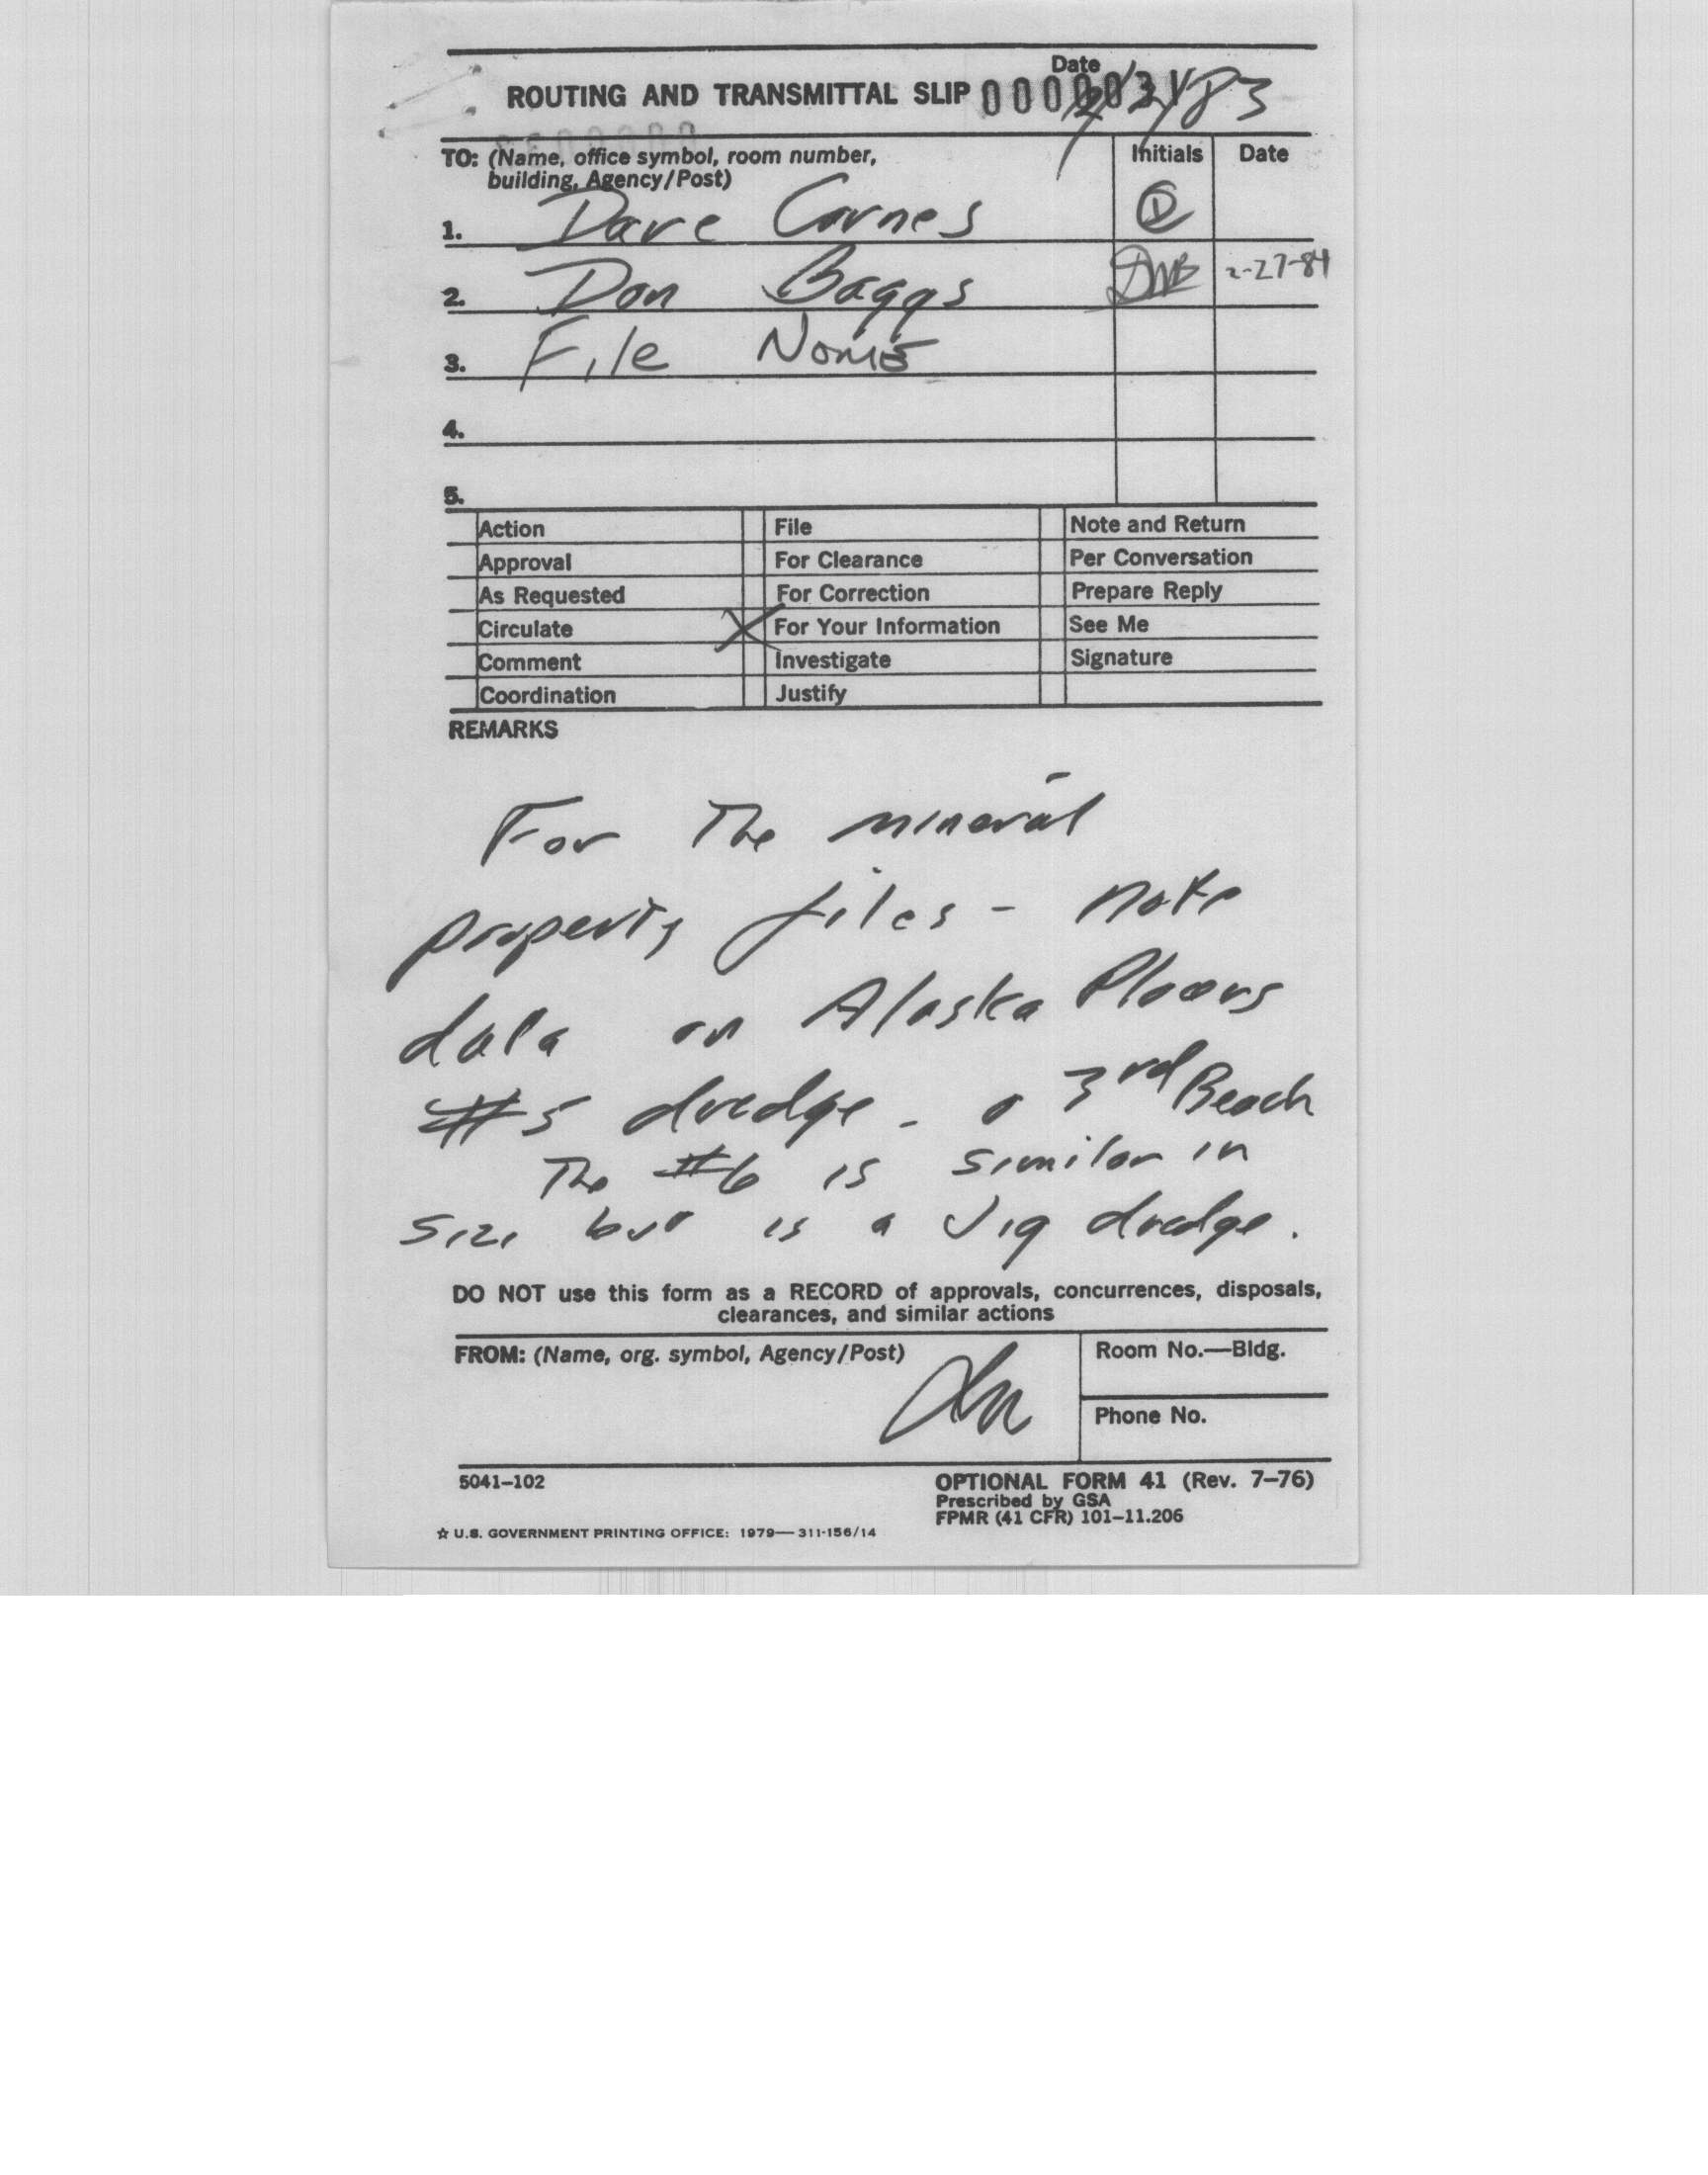 Date
ROUTING AND TRANSMITTAL SLIP 83
TO: (Name, office symbol, room number, Initials Date
building, Agency/Post)
1. Dave Carnes D
2. Don Baggs DWB 2-27-84
3. File Nome
4.
5.
Action File Note and Return
Approval For Clearance Per Conversation
As Requested For Correction Prepare Reply
Circulate X For Your Information See Me
Comment Investigate Signature
Coordination Justify
REMARKS
For The mineral
property files - note
data on Alaska Placers
#5 dredge - 3rd Beach
The #6 is similar in
size but is a Jig dredge.
DO NOT use this form as a RECORD of approvals, concurrences, disposals,
clearances, and similar actions
FROM: (Name, org. symbol, Agency/Post) Room No.—Bldg.
Phone No.
5041-102 OPTIONAL FORM 41 (Rev. 7-76)
Prescribed by GSA
FPMR (41 CFR) 101-11.206
☆ U.S. GOVERNMENT PRINTING OFFICE: 1979—311-156/14